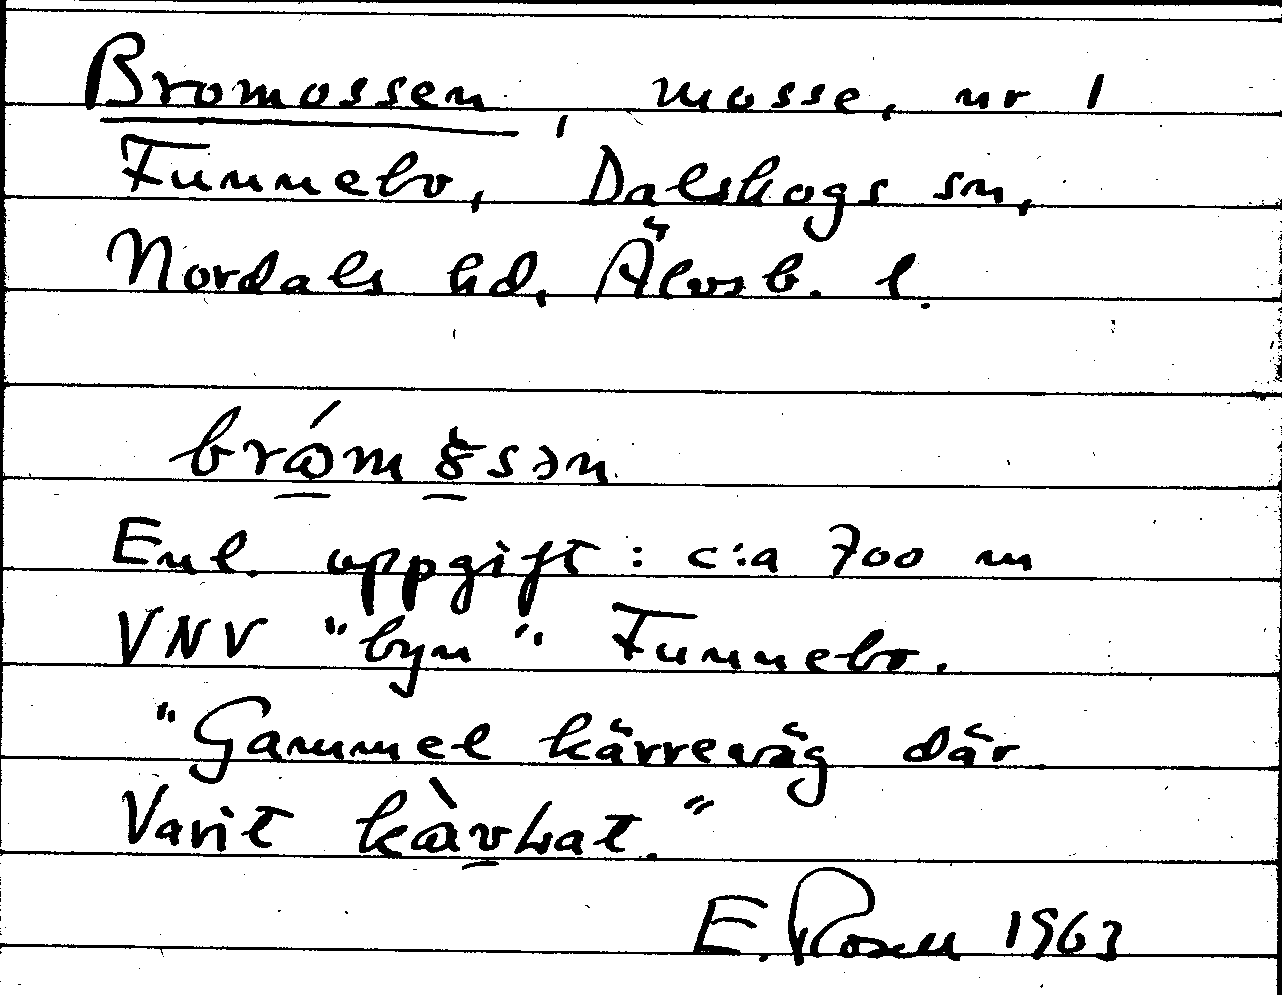 Bromossen, mosse, nr 1
Funnebo, Dalskogs sn,
Nordals hd, Älvsb. l.
Enl. uppgift: c:a 700 m
VNV "byn" Funnebo.
"Gammel kärreväg där
Varit kàvlat."
E. Rosell 1963